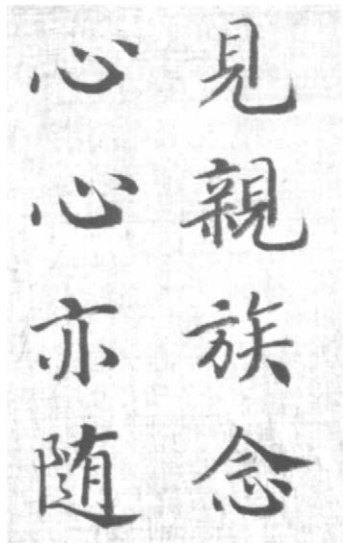 見親族念
心心亦随